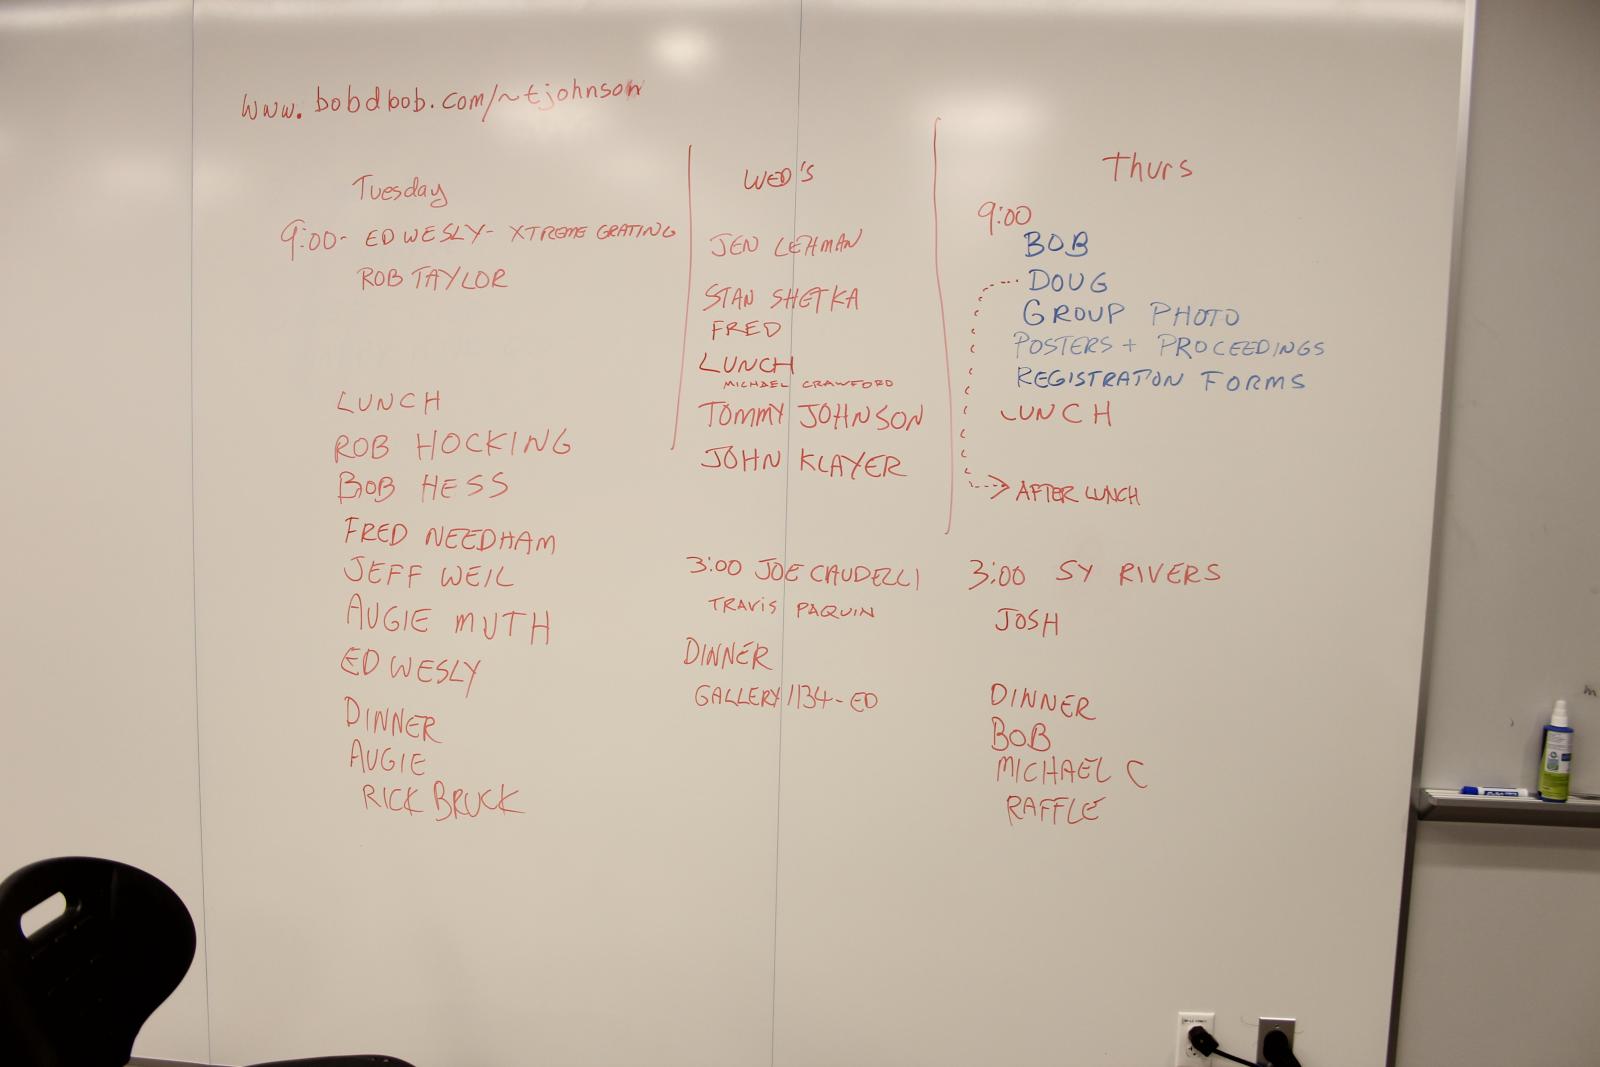 www.bobdbob.com/~tjohnson
Tuesday
9:00- ED WESLY- XTREME GRATING
ROB TAYLOR
LUNCH
ROB HOCKING
BOB HESS
FRED NEEDHAM
JEFF WEIL
AUGIE MUTH
ED WESLY
DINNER
AUGIE
RICK BRUCK
WED'S
JEN LEHMAN
STAN SHETKA
FRED
LUNCH
MICHAEL CRAWFORD
TOMMY JOHNSON
JOHN KLAYER
3:00 JOE CAUDELLI
TRAVIS PAQUIN
DINNER
GALLERY 1134-ED
Thurs
9:00
BOB
DOUG
GROUP PHOTO
POSTERS + PROCEEDINGS
REGISTRATION FORMS
LUNCH
AFTER LUNCH
3:00 SY RIVERS
JOSH
DINNER
BOB
MICHAEL C
RAFFLE